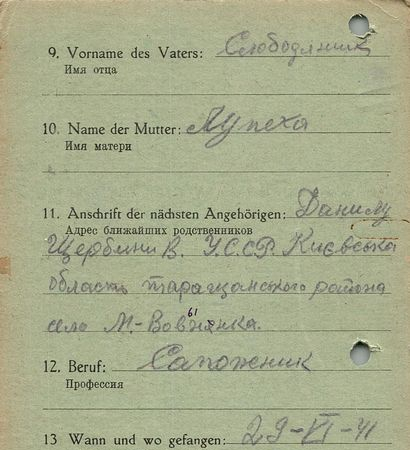 9. Vorname des Vaters: Слободяник
Имя отца
10. Name der Mutter: Лупеха
Имя матери
11. Anschrift der nächsten Angehörigen: Данилу
Адрес ближайших родственников
Щербини В. У.С.С.Р. Києвська
область таращанського района
село М.-Вовнянка.
12. Beruf: Сапожник
Профессия
13 Wann und wo gefangen: 29-VI-41